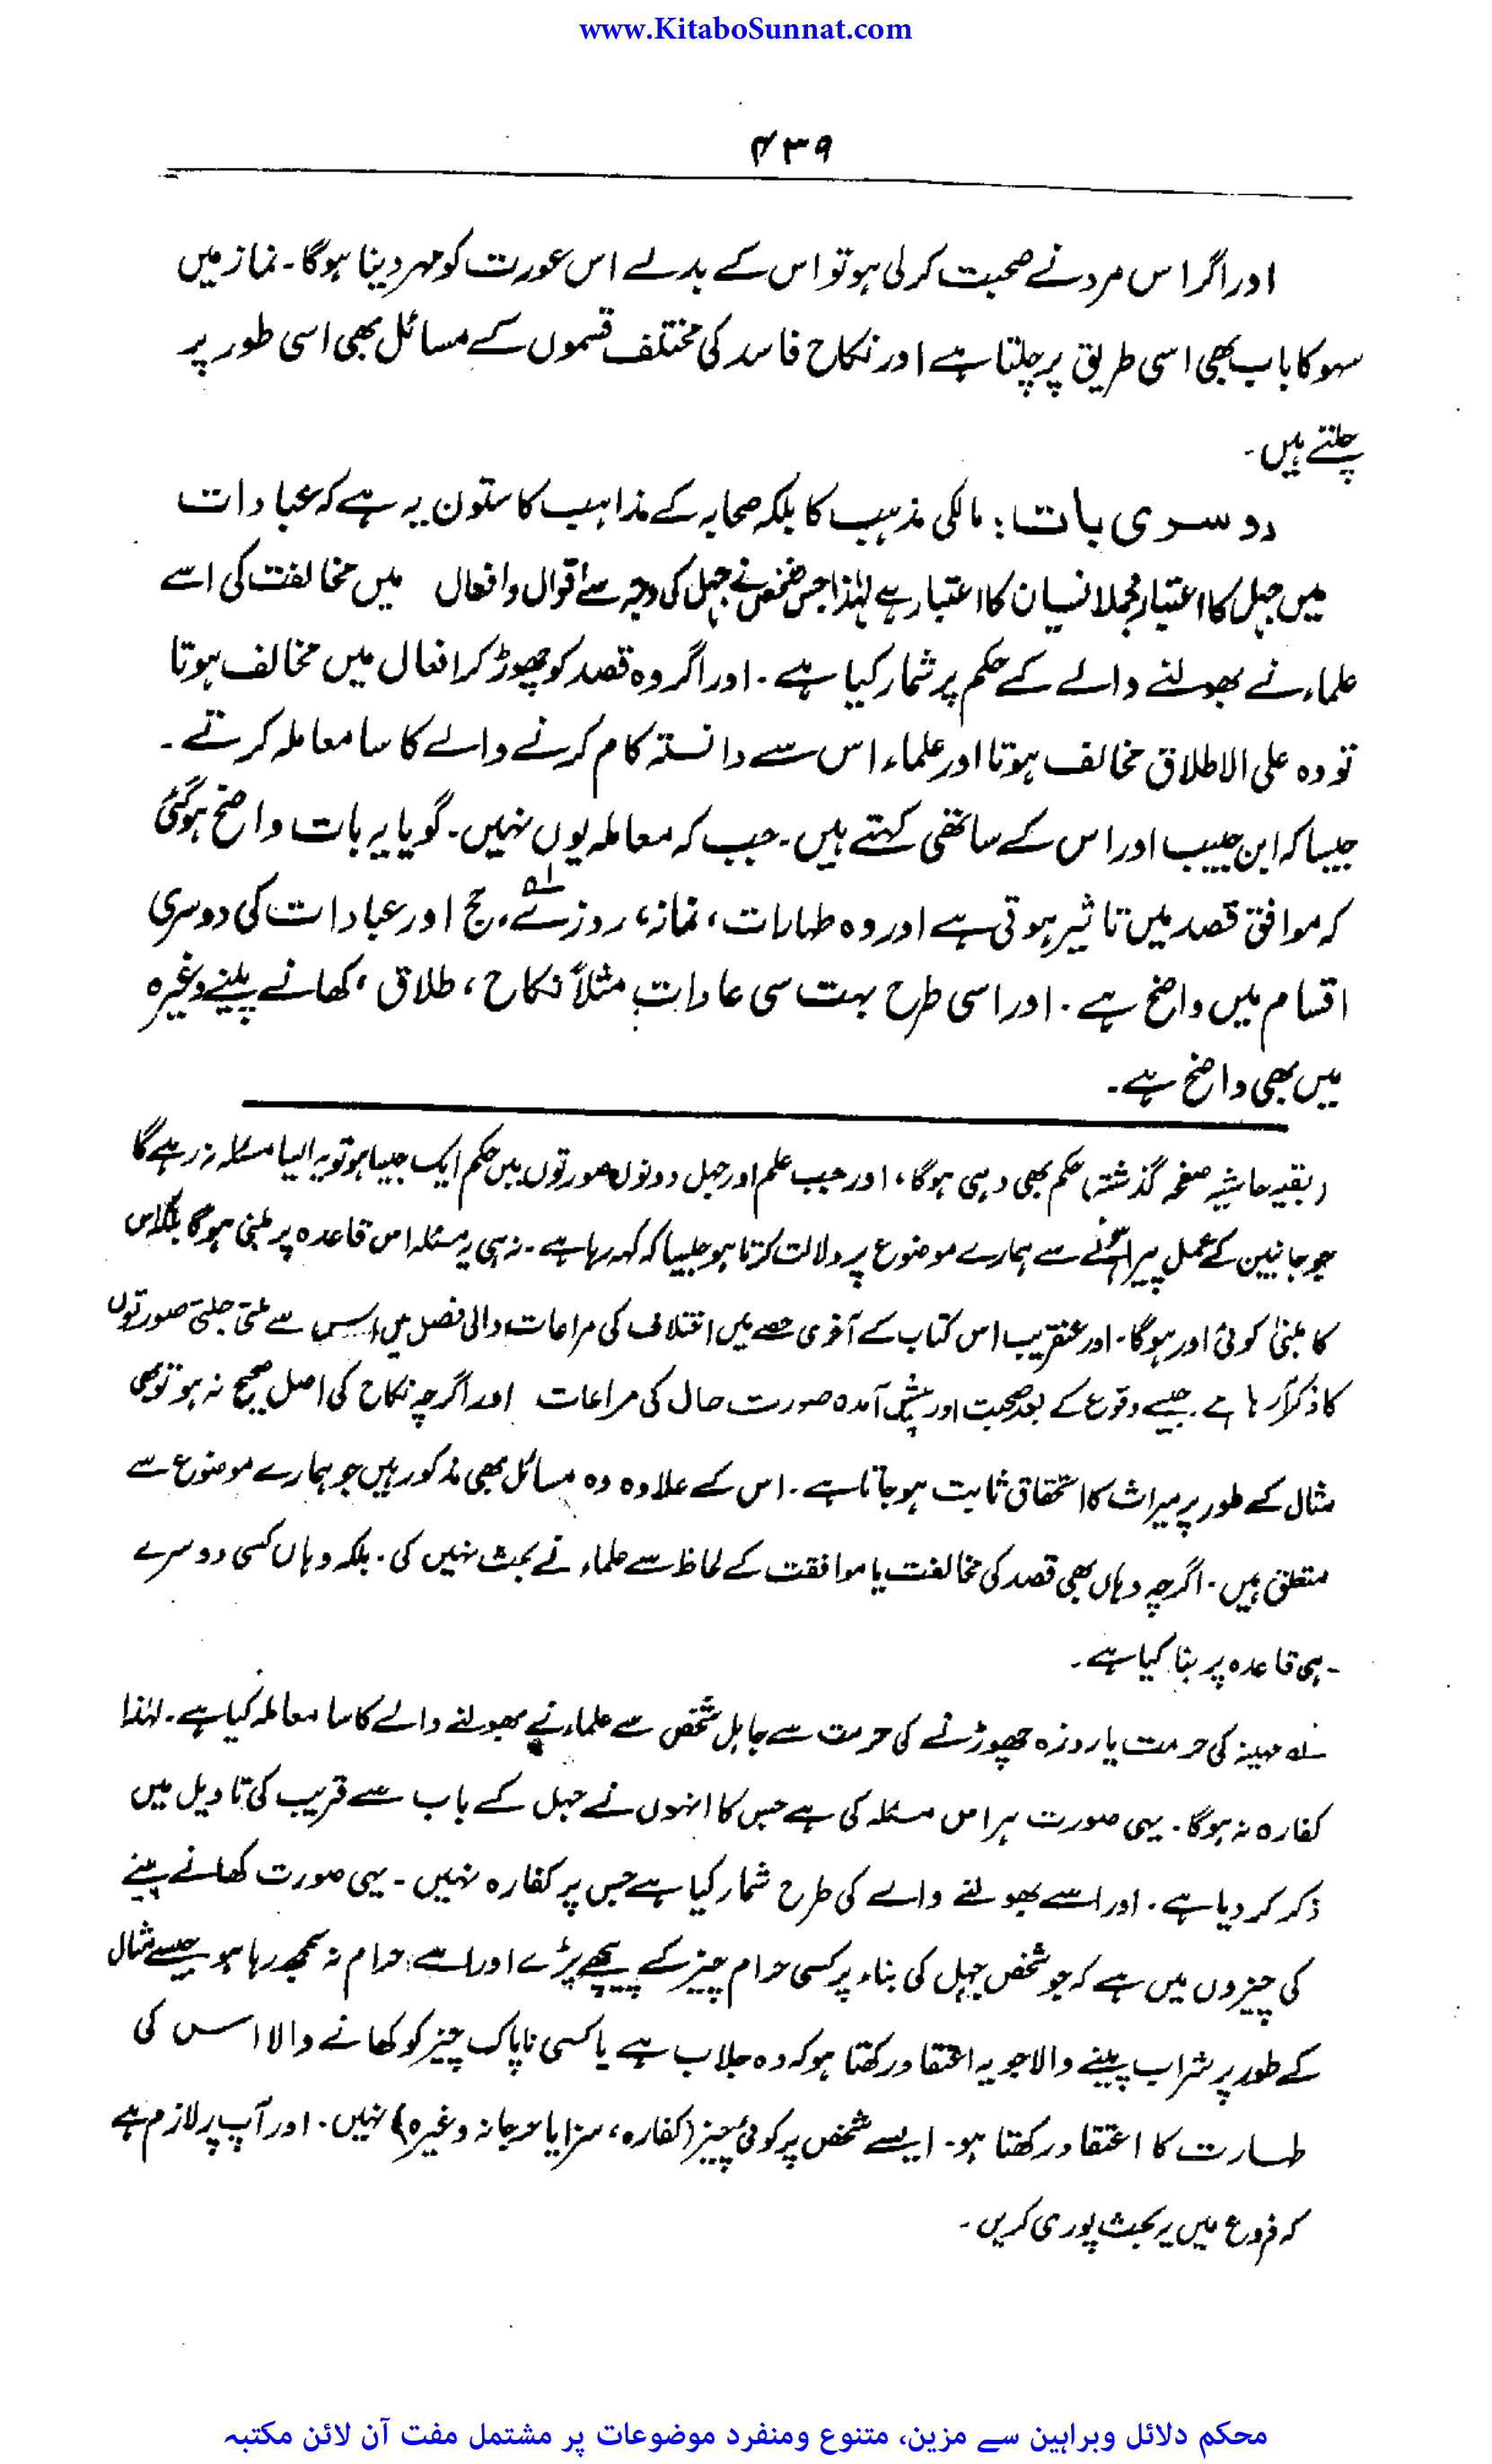 www.KitaboSunnat.com
۴۳۹
اور اگر اس مرد نے صحبت کرلی ہو تو اس کے بدلے اس عورت کو مہر دینا ہوگا۔ نماز میں
سہو کا باب بھی اسی طریق پر چلتا ہے اور نکاح فاسد کی مختلف قسموں کے مسائل بھی اسی طور پر
چلتے ہیں۔
دوسری بات: مالکی مذہب کا بلکہ صحابہ کے مذاہب کا ستون یہ ہے کہ عبادات
میں جہل کا اعتبار مجملا نسیان کا اعتبار ہے لہٰذا جس شخص نے جہل کی وجہ سے اقوال و افعال میں مخالفت کی اسے
علماء نے بھولنے والے کے حکم پر شمار کیا ہے۔ اور اگر وہ قصد کو چھوڑ کر افعال میں مخالف ہوتا
تو وہ علی الاطلاق مخالف ہوتا اور علماء اس سے دانستہ کام کرنے والے کا سا معاملہ کرتے۔
جیسا کہ ابن حبیب اور اس کے ساتھی کہتے ہیں۔ جب کہ معاملہ یوں نہیں۔ گویا یہ بات واضح ہوگئی
کہ موافق قصد میں تاثیر ہوتی ہے اور وہ طہارات، نماز، روزے،۱ حج اور عبادات کی دوسری
اقسام میں واضح ہے۔ اور اسی طرح بہت سی عادات مثلاً نکاح، طلاق، کھانے پینے وغیرہ
میں بھی واضح ہے۔
(بقیہ حاشیہ صفحہ گذشتہ) حکم بھی وہی ہوگا، اور جب علم اور جہل دونوں صورتوں میں حکم ایک جیسا ہو تو یہ ایسا مسئلہ نہ رہے گا
جو جانبین کے عمل پیرا ہونے سے ہمارے موضوع پر دلالت کرتا ہو جیسا کہ کہہ رہا ہے۔ نہ ہی یہ مسئلہ اس قاعدہ پر مبنی ہوگا بلکہ اس
کا مبنیٰ کوئی اور ہوگا۔ اور عنقریب اس کتاب کے آخری حصے میں اختلاف کی مراعات والی فصل میں اس سے ملتی جلتی صورتوں
کا ذکر آرہا ہے۔ جیسے وقوع کے بعد صحبت اور پیش آمدہ صورت حال کی مراعات اور اگرچہ نکاح کی اصل صحیح نہ ہو تو بھی
مثال کے طور پر میراث کا استحقاق ثابت ہو جاتا ہے۔ اس کے علاوہ وہ مسائل بھی مذکور ہیں جو ہمارے موضوع سے
متعلق ہیں۔ اگرچہ وہاں بھی قصد کی مخالفت یا موافقت کے لحاظ سے علماء نے بحث نہیں کی۔ بلکہ وہاں کسی دوسرے
ہی قاعدہ پر بنا کیا ہے۔
۱ مہینہ کی حرمت یا روزہ چھوڑنے کی حرمت سے جاہل شخص سے علماء نے بھولنے والے کا سا معاملہ کیا ہے۔ لہٰذا
کفارہ نہ ہوگا۔ یہی صورت ہر اس مسئلہ کی ہے جس کا انہوں نے جہل کے باب سے قریب کی تاویل میں
ذکر کر دیا ہے۔ اور اسے بھولنے والے کی طرح شمار کیا ہے جس پر کفارہ نہیں۔ یہی صورت کھانے پینے
کی چیزوں میں ہے کہ جو شخص جہل کی بناء پر کسی حرام چیز کے پیچھے پڑے اور اسے حرام نہ سمجھ رہا ہو جیسے مثال
کے طور پر شراب پینے والا جو یہ اعتقاد رکھتا ہو کہ وہ جلاب ہے یا کسی ناپاک چیز کو کھانے والا اس کی
طہارت کا اعتقاد رکھتا ہو۔ ایسے شخص پر کوئی چیز (کفارہ، سزا یا ہرجانہ وغیرہ) نہیں۔ اور آپ پر لازم ہے
کہ فروع میں یہ بحث پوری کریں۔
محکم دلائل وبراہین سے مزین، متنوع ومنفرد موضوعات پر مشتمل مفت آن لائن مکتبہ